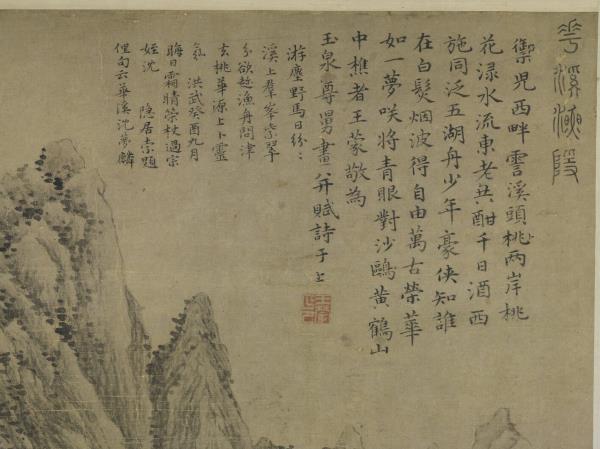 花谿漁隱
禦児西畔霅溪頭桃兩岸桃
花渌水流東老共酣千日酒西
施同泛五湖舟少年豪俠知誰
在白髮烟波得自由萬古榮華
如一夢咲將青眼對沙鷗黄鶴山
中樵者王蒙敬為
玉泉尊舅畫并賦詩于上
游塵野馬日紛〻
溪上羣峯紫翠
分欲趁漁舟問津
去桃華源上卜靈
氛 洪武癸酉九月
晦日霜晴策杖過宗
姪沈 隠居索題
俚句云華溪沈夢麟